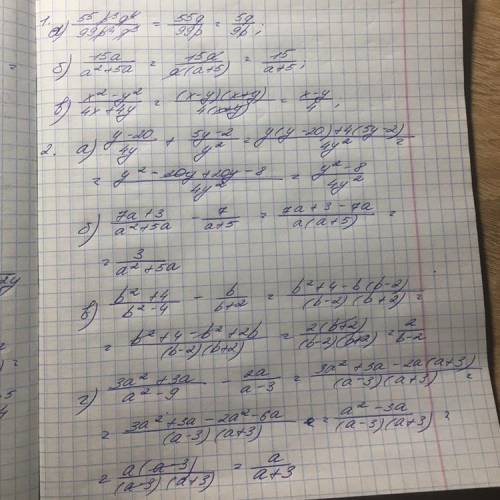 1. а) 55 p³q⁴ / 99p⁴q³ = 55q / 99p = 5q / 9p;
б) 15a / a²+5a = 15a / a(a+5) = 15 / a+5;
в) x²-y² / 4x+4y = (x-y)(x+y) / 4(x+y) = x-y / 4;
2. а) y-20 / 4y + 5y-2 / y² = y(y-20)+4(5y-2) / 4y² =
= y²-20y+20y-8 / 4y² = y²-8 / 4y²
б) 7a+3 / a²+5a - 7 / a+5 = 7a+3-7a / a(a+5) =
= 3 / a²+5a
в) b²+4 / b²-4 - b / b+2 = b²+4-b(b-2) / (b-2)(b+2) =
= b²+4-b²+2b / (b-2)(b+2) = 2(b+2) / (b-2)(b+2) = 2 / b-2
г) 3a²+3a / a²-9 - 2a / a-3 = 3a²+3a-2a(a+3) / (a-3)(a+3) =
= 3a²+3a-2a²-6a / (a-3)(a+3) = a²-3a / (a-3)(a+3) =
= a(a-3) / (a-3)(a+3) = a / a+3